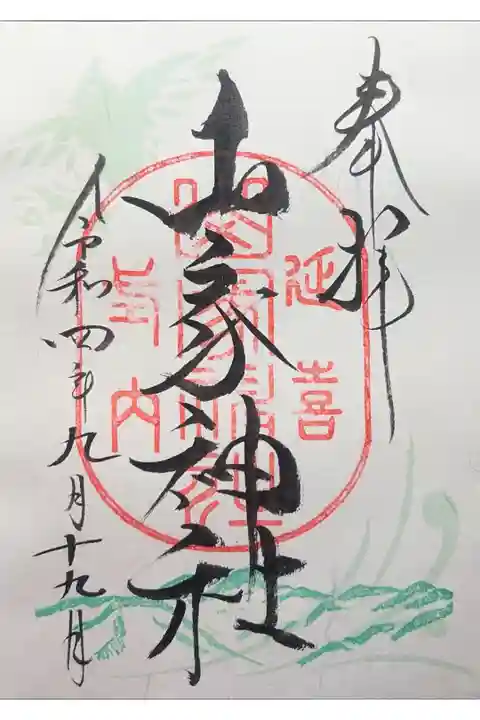 奉拝
延喜
式内
山家神社
山家神社
令和四年九月十九日